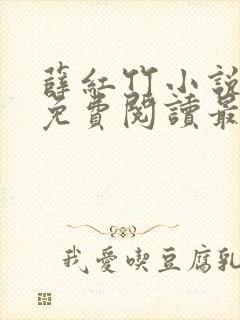 薛紅竹小說
免費閱讀最
我愛喫豆腐乳